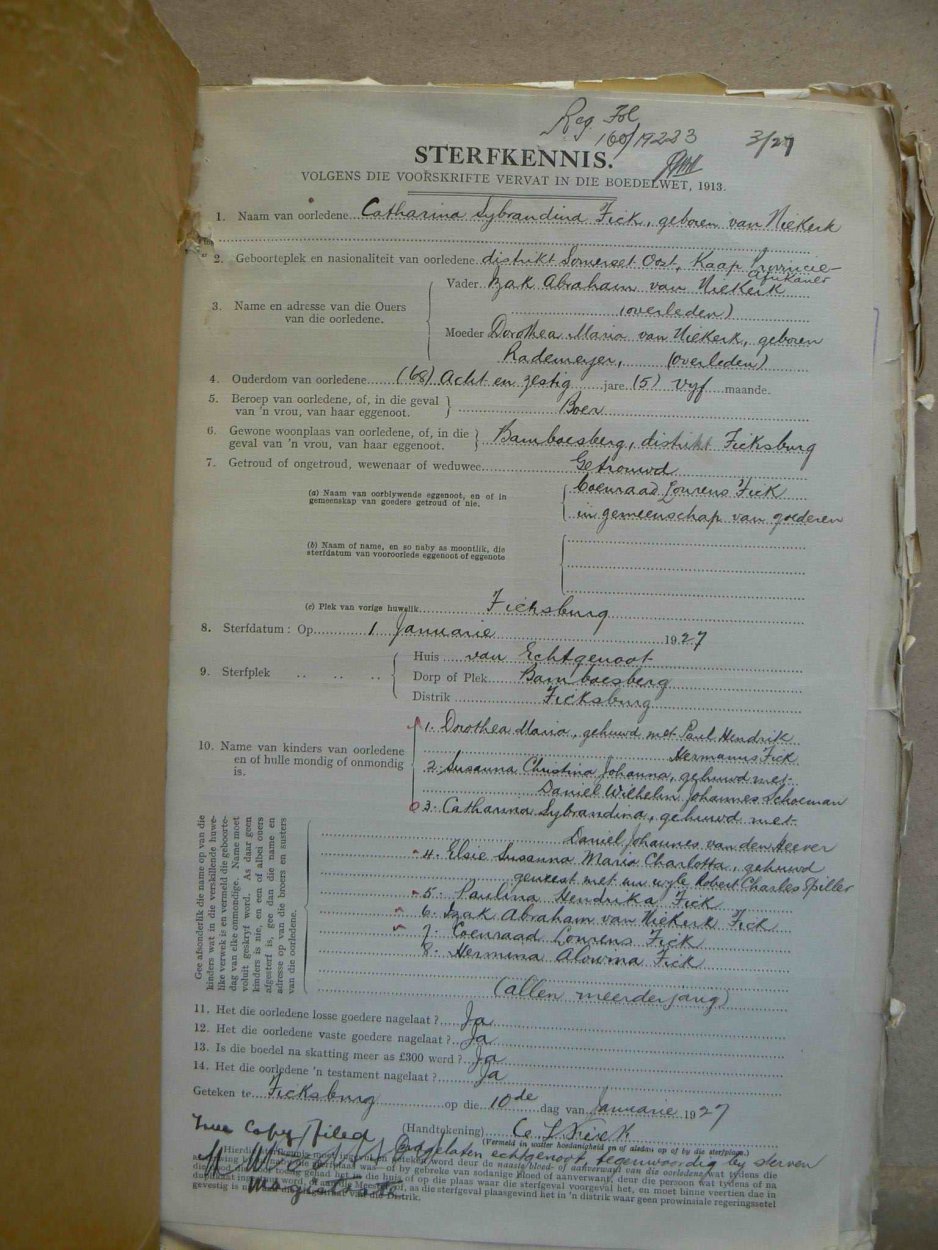 Reg Fol
160/19233 3/27
STERFKENNIS.
VOLGENS DIE VOORSKRIFTE VERVAT IN DIE BOEDELWET, 1913.
1. Naam van oorledene Catharina Sybrandina Fick, geboren van Niekerk
2. Geboorteplek en nasionaliteit van oorledene distrikt Somerset Oost, Kaap Provincie
Afrikaner
3. Name en adresse van die Ouers van die oorledene. Vader Izak Abraham van Niekerk
(overleden)
Moeder Dorothea Maria van Niekerk, geboren
Rademeijer, (overleden)
4. Ouderdom van oorledene (68) Acht en zestig jare (5) vyf maande.
5. Beroep van oorledene, of, in die geval van 'n vrou, van haar eggenoot. Boer
6. Gewone woonplaas van oorledene, of, in die geval van 'n vrou, van haar eggenoot. Bamboesberg, distrikt Ficksburg
7. Getroud of ongetroud, wewenaar of weduwee Getrouwd
(a) Naam van oorblywende eggenoot, en of in gemeenskap van goedere getroud of nie. Coenraad Lourens Fick
in gemeenschap van goederen
(b) Naam of name, en so naby as moontlik, die sterfdatum van vooroorlede eggenoot of eggenote
(c) Plek van vorige huwelik Ficksburg
8. Sterfdatum: Op 1 Januarie 1927
9. Sterfplek Huis van Echtgenoot
Dorp of Plek Bamboesberg
Distrik Ficksburg
10. Name van kinders van oorledene en of hulle mondig of onmondig is.
1. Dorothea Maria, gehuwd met Paul Hendrik
Hermanus Fick
2. Susanna Christina Johanna, gehuwd met
Daniel Wilhelm Johannes Schoeman
3. Catharina Sybrandina, gehuwd met
Daniel Johannes van den Heever
4. Elsie Susanna Maria Charlotta, gehuwd
geweest met nu wyle Robert Charles Spiller
5. Paulina Hendrika Fick
6. Izak Abraham van Niekerk Fick
7. Coenraad Lourens Fick
8. Hermina Alowina Fick
(allen meerderjarig)
Gee afsonderlik die name op van die
kinders wat in die verskillende huwe-
like verwek is en vermeld die geboorte-
dag van elke onmondige. Name moet
voluit geskryf word. As daar geen
kinders is nie, en een of albei ouers
afgesterf is, gee dan die name en
adresse op van die broers en susters
van die oorledene.
11. Het die oorledene losse goedere nagelaat? Ja
12. Het die oorledene vaste goedere nagelaat? Ja
13. Is die boedel na skatting meer as £300 werd? Ja
14. Het die oorledene 'n testament nagelaat? Ja
Geteken te Ficksburg op die 10de dag van Januarie 1927
(Handtekening) C L Fick
(Vermeld in watter hoedanigheid en of aldan op of by die sterfplaas.)
True Copy filed
Nagelaten echtgenoot tegenwoordig by sterven
Magistrate